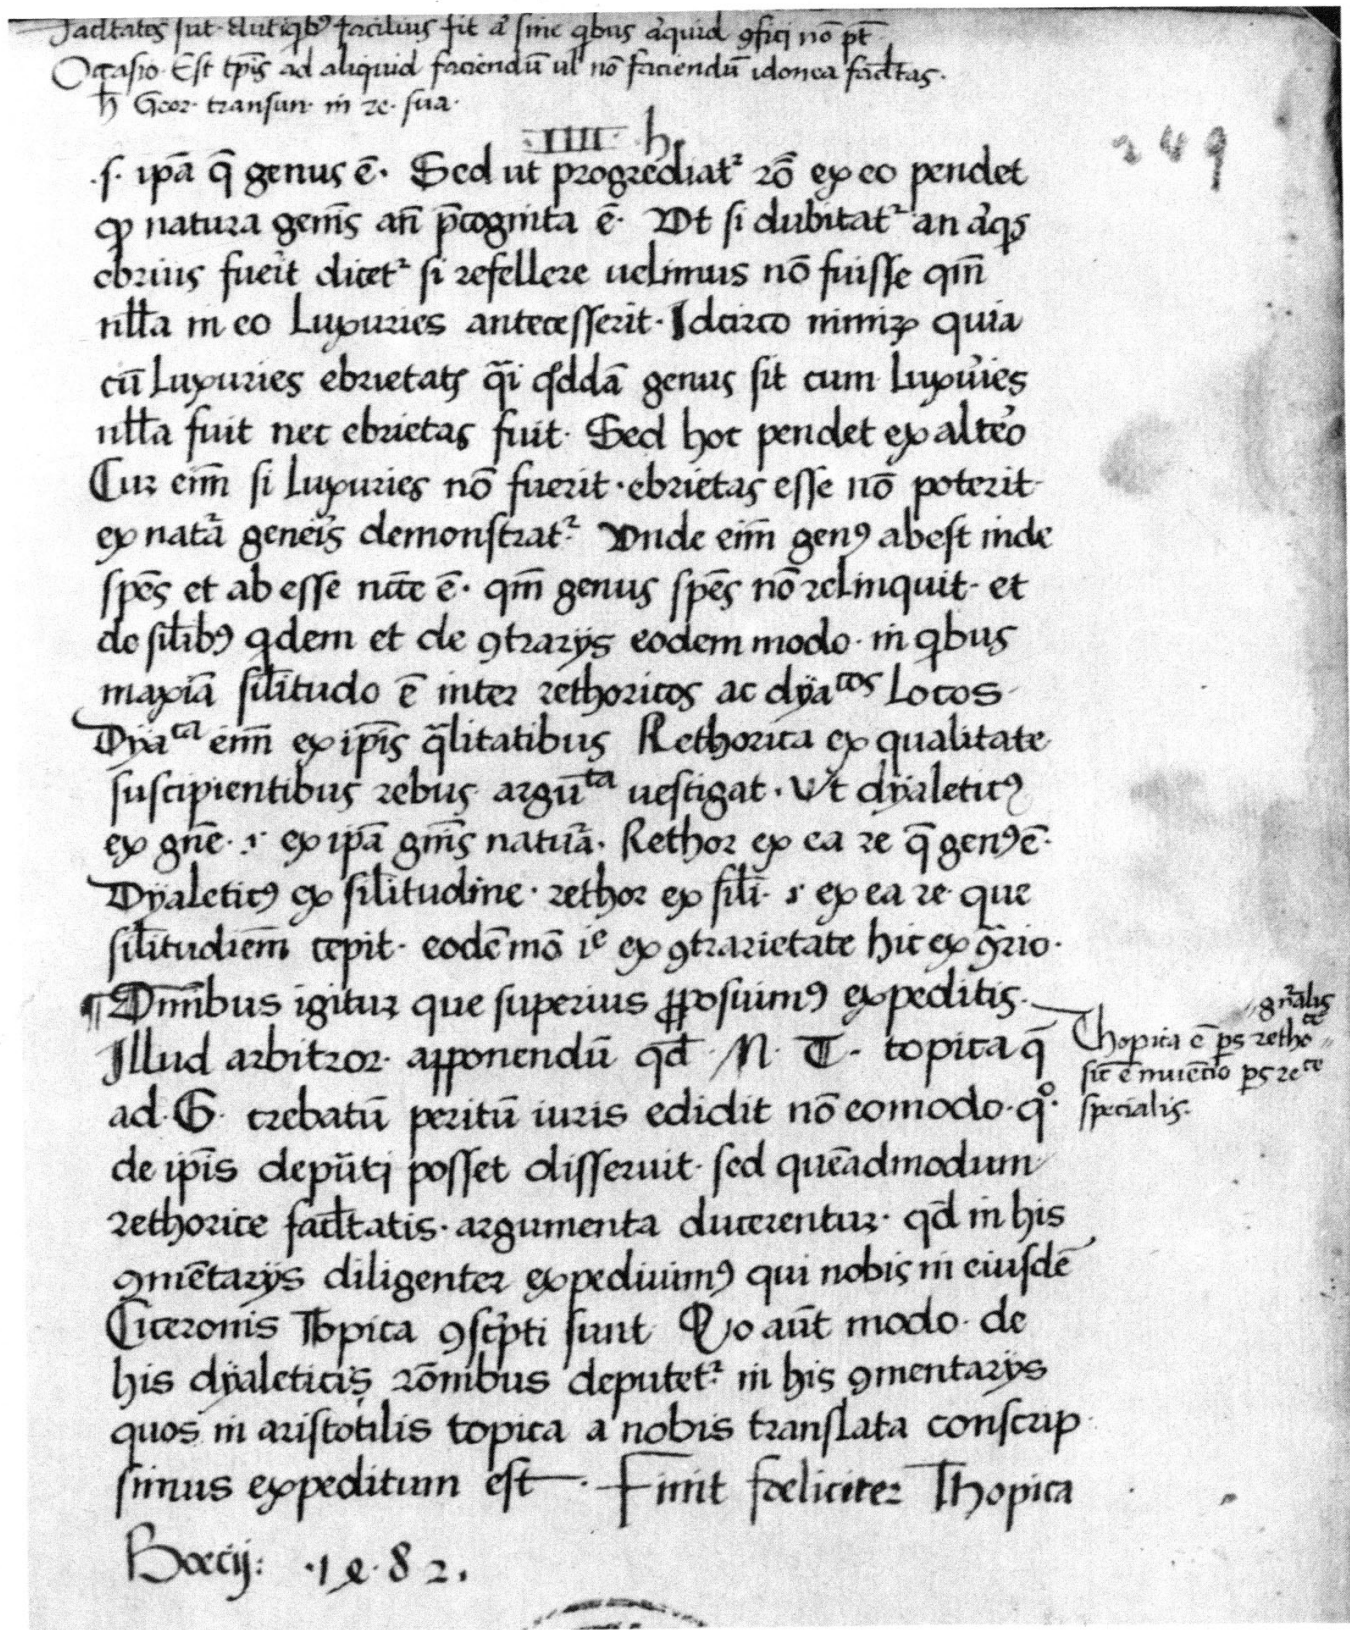 Facl̄tates sūt aut q̇bꝰ facilius fit aͥ sine q̇bus aͥquid ꝯfici nō pt̄
Occasio. Est tp̄is ad aliquid faciendū ul̄ nō faciendū idonea facl̄tas.
h̄ Geor. transun. in re. sua.
.IIII. h.
249
.s. ipā q̄ genus ē. Sed ut progrediatᷣ rō ex eo pendet
ꝙ natura genīs an̄ p̄cognita ē. Vt si dubitatᷣ an aͥqͥs
ebrius fuerͥt dicetᷣ si refellere uelimus nō fuisse qm̄
nll̄a in eo Luxuries antecesserit. Idcirco nimiꝝ quia
cū Luxuries ebrietatꝭ qᷓi qͦddā genus sit cum Luxuͥies
nll̄a fuit nec ebrietas fuit. Sed hoc pendet ex alteͦo
Cur eim̄ si Luxuries nō fuerit. ebrietas esse nō poterit.
ex natᷓa geneͥis demonstratᷣ. Vnde eim̄ genꝰ abest inde
spēs et ab esse ncc̄e ē. qm̄ genus spēs nō relinquit. et
de sil̄ibꝰ qͥdem et de ꝯtrarijs eodem modo. in qͥbus
maxīa sil̄itudo ē inter rethoricos ac dyaᶜᵒˢ Locos.
Dyaᶜᵃ eim̄ ex ip̄is qᷓlitatibus Rethorica ex qualitate
suscipientibus rebus argū ᵗᵃ uestigat. Vt dyaleticꝰ
ex gn̄e. s. ex ipā gn̄is natuᷓa. Rethor ex ea re q̄ genꝰ ē.
Dyaleticꝰ ex sil̄itudine. rethor ex sil̄i. s. ex ea re. que
sil̄itudiem̄ cepit. eodē mō iᵉ ex ꝯtrarietate hic ex ꝯᷓrio.
¶ Omībus igitur que superius ꝓposuimꝰ expeditis.
Illud arbitror. apponendū qd̄ .M. T. topica q̄
ad .G. trebatū peritū iuris edidit nō eo modo. qͦ.
de ip̄is depūti posset disseruit. sed quēadmodum
rethorice facl̄tatis. argumenta ducerentur. qd̄ in his
ꝯmētarijs diligenter expediuimꝰ qui nobis in eiusdē
Ciceronis Topica ꝯscͥpti sunt. Qͦ aūt modo. de
his dyaleticis rōnibus deputetᷣ. in his ꝯmentarijs
quos in aristotilis topica a nobis translata conscrip
simus expeditum est. Finit fœliciter Thopica
Boecij: .1482.
gn̄alis
Thopica ē ps retho ᶜᵉ
sic̄ ē inuētio ps reᶜᵉ
specialis.